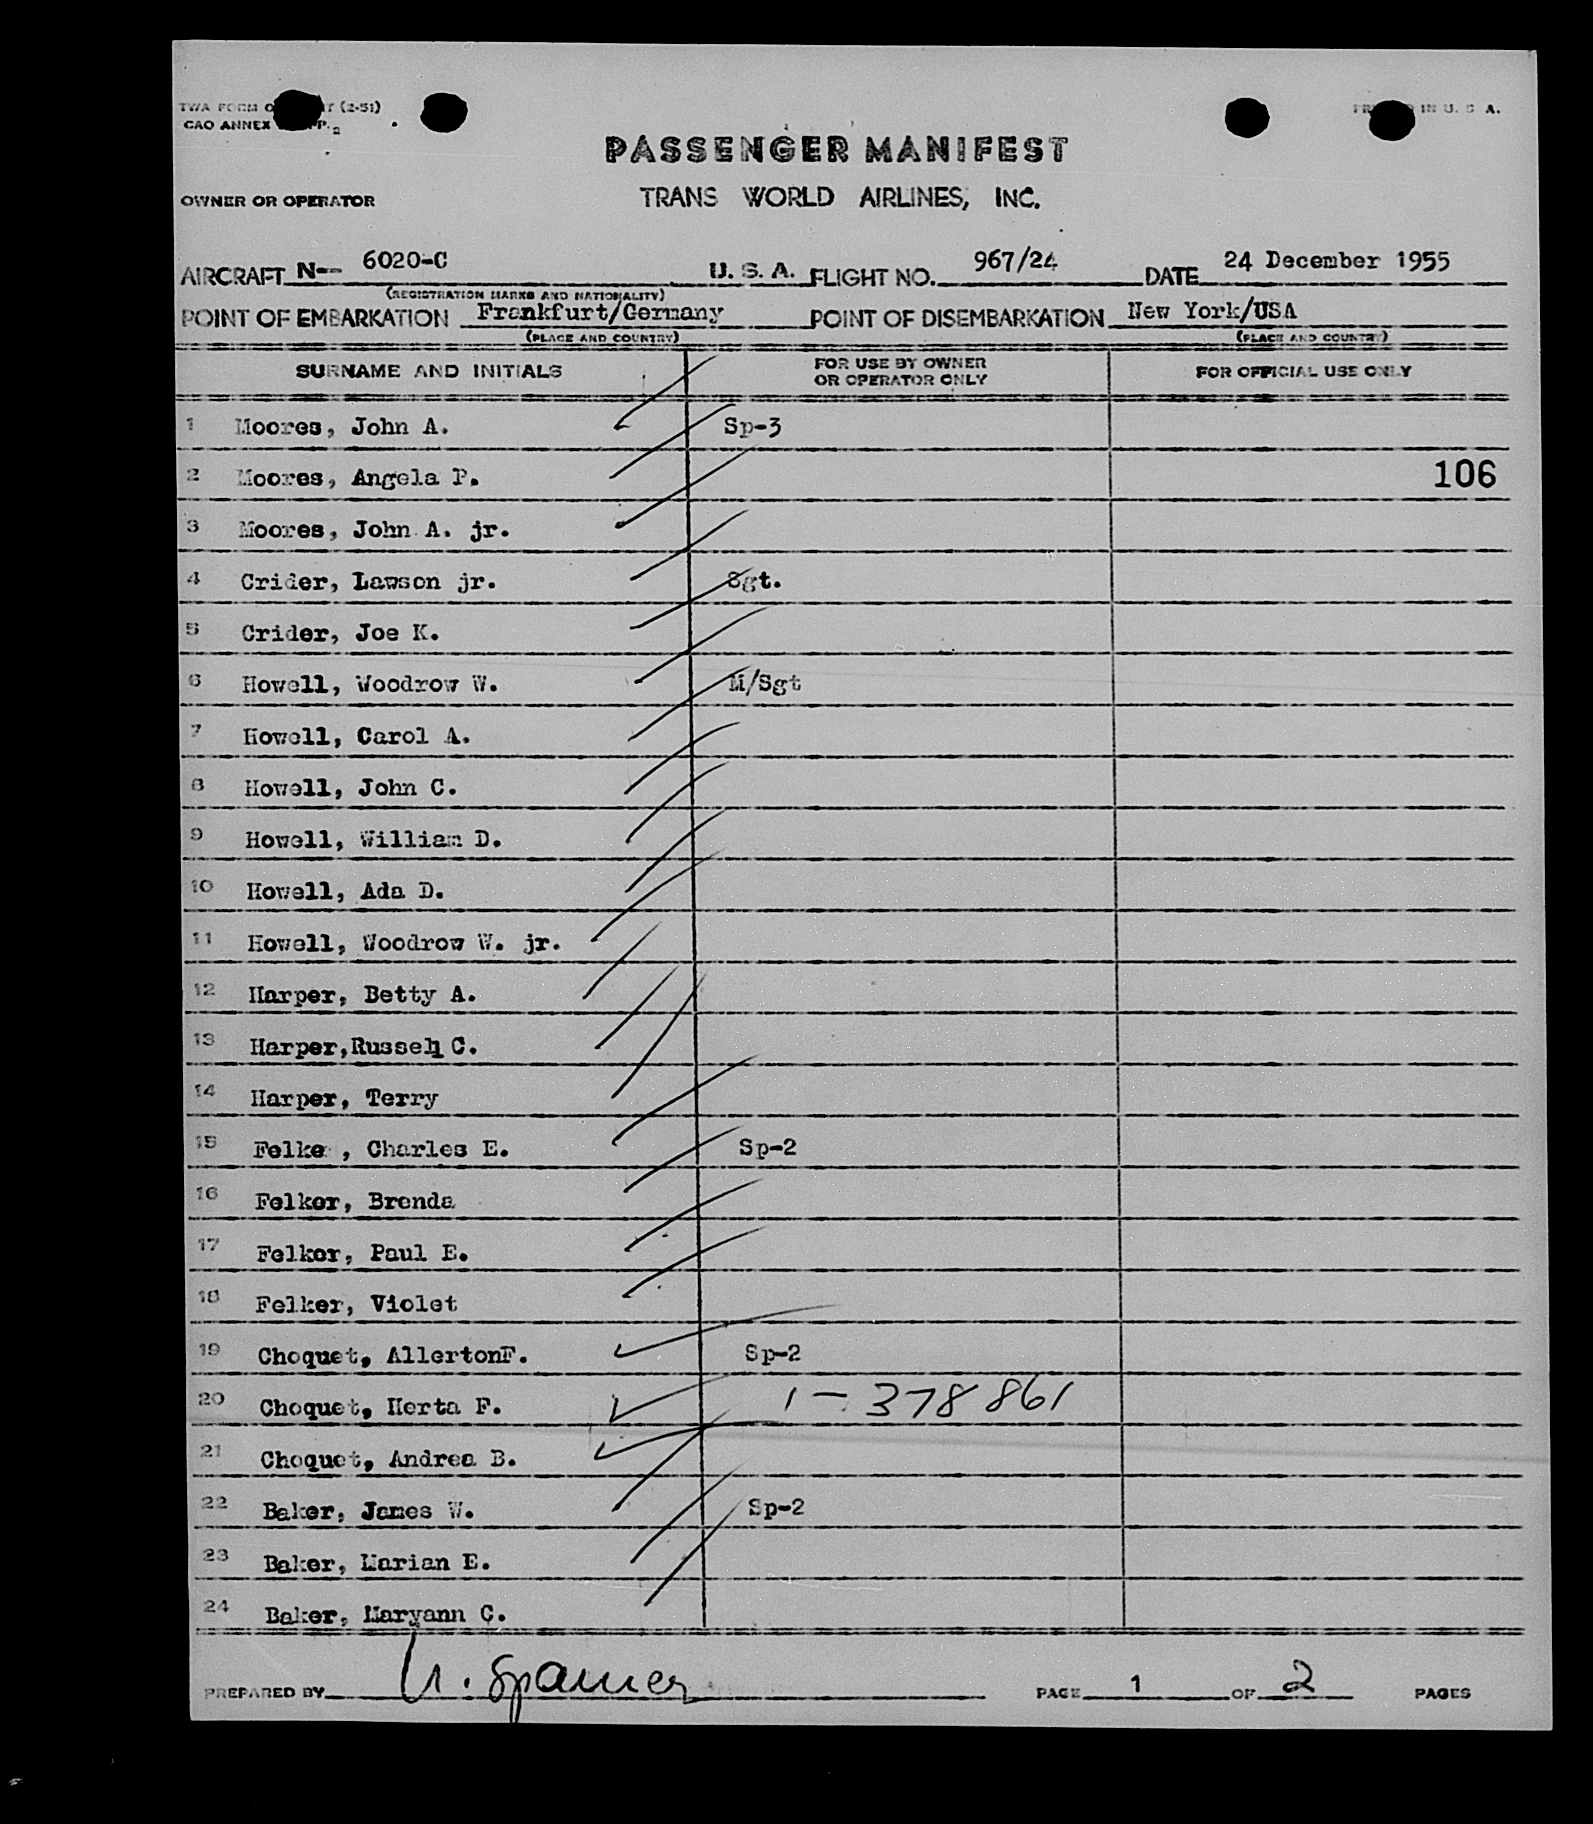 TWA FORM (2-51)
CAO ANNEX
PRINTED IN U. S. A.
PASSENGER MANIFEST
OWNER OR OPERATOR TRANS WORLD AIRLINES, INC.
AIRCRAFT N-- 6020-C U. S. A. FLIGHT NO. 967/24 DATE 24 December 1955
(REGISTRATION MARKS AND NATIONALITY)
POINT OF EMBARKATION Frankfurt/Germany POINT OF DISEMBARKATION New York/USA
(PLACE AND COUNTRY) (PLACE AND COUNTRY)
SURNAME AND INITIALS FOR USE BY OWNER OR OPERATOR ONLY FOR OFFICIAL USE ONLY
1 Moores, John A. Sp-3
2 Moores, Angela P. 106
3 Moores, John A. jr.
4 Crider, Lawson jr. Sgt.
5 Crider, Joe K.
6 Howell, Woodrow W. M/Sgt
7 Howell, Carol A.
8 Howell, John C.
9 Howell, William D.
10 Howell, Ada D.
11 Howell, Woodrow W. jr.
12 Harper, Betty A.
13 Harper,Russell C.
14 Harper, Terry
15 Felke , Charles E. Sp-2
16 Felker, Brenda
17 Felker, Paul E.
18 Felker, Violet
19 Choquet, AllertonF. Sp-2
20 Choquet, Herta F. 1-378861
21 Choquet, Andrea B.
22 Baker, James W. Sp-2
23 Baker, Marian E.
24 Baker, Maryann C.
PREPARED BY PAGE 1 OF 2 PAGES